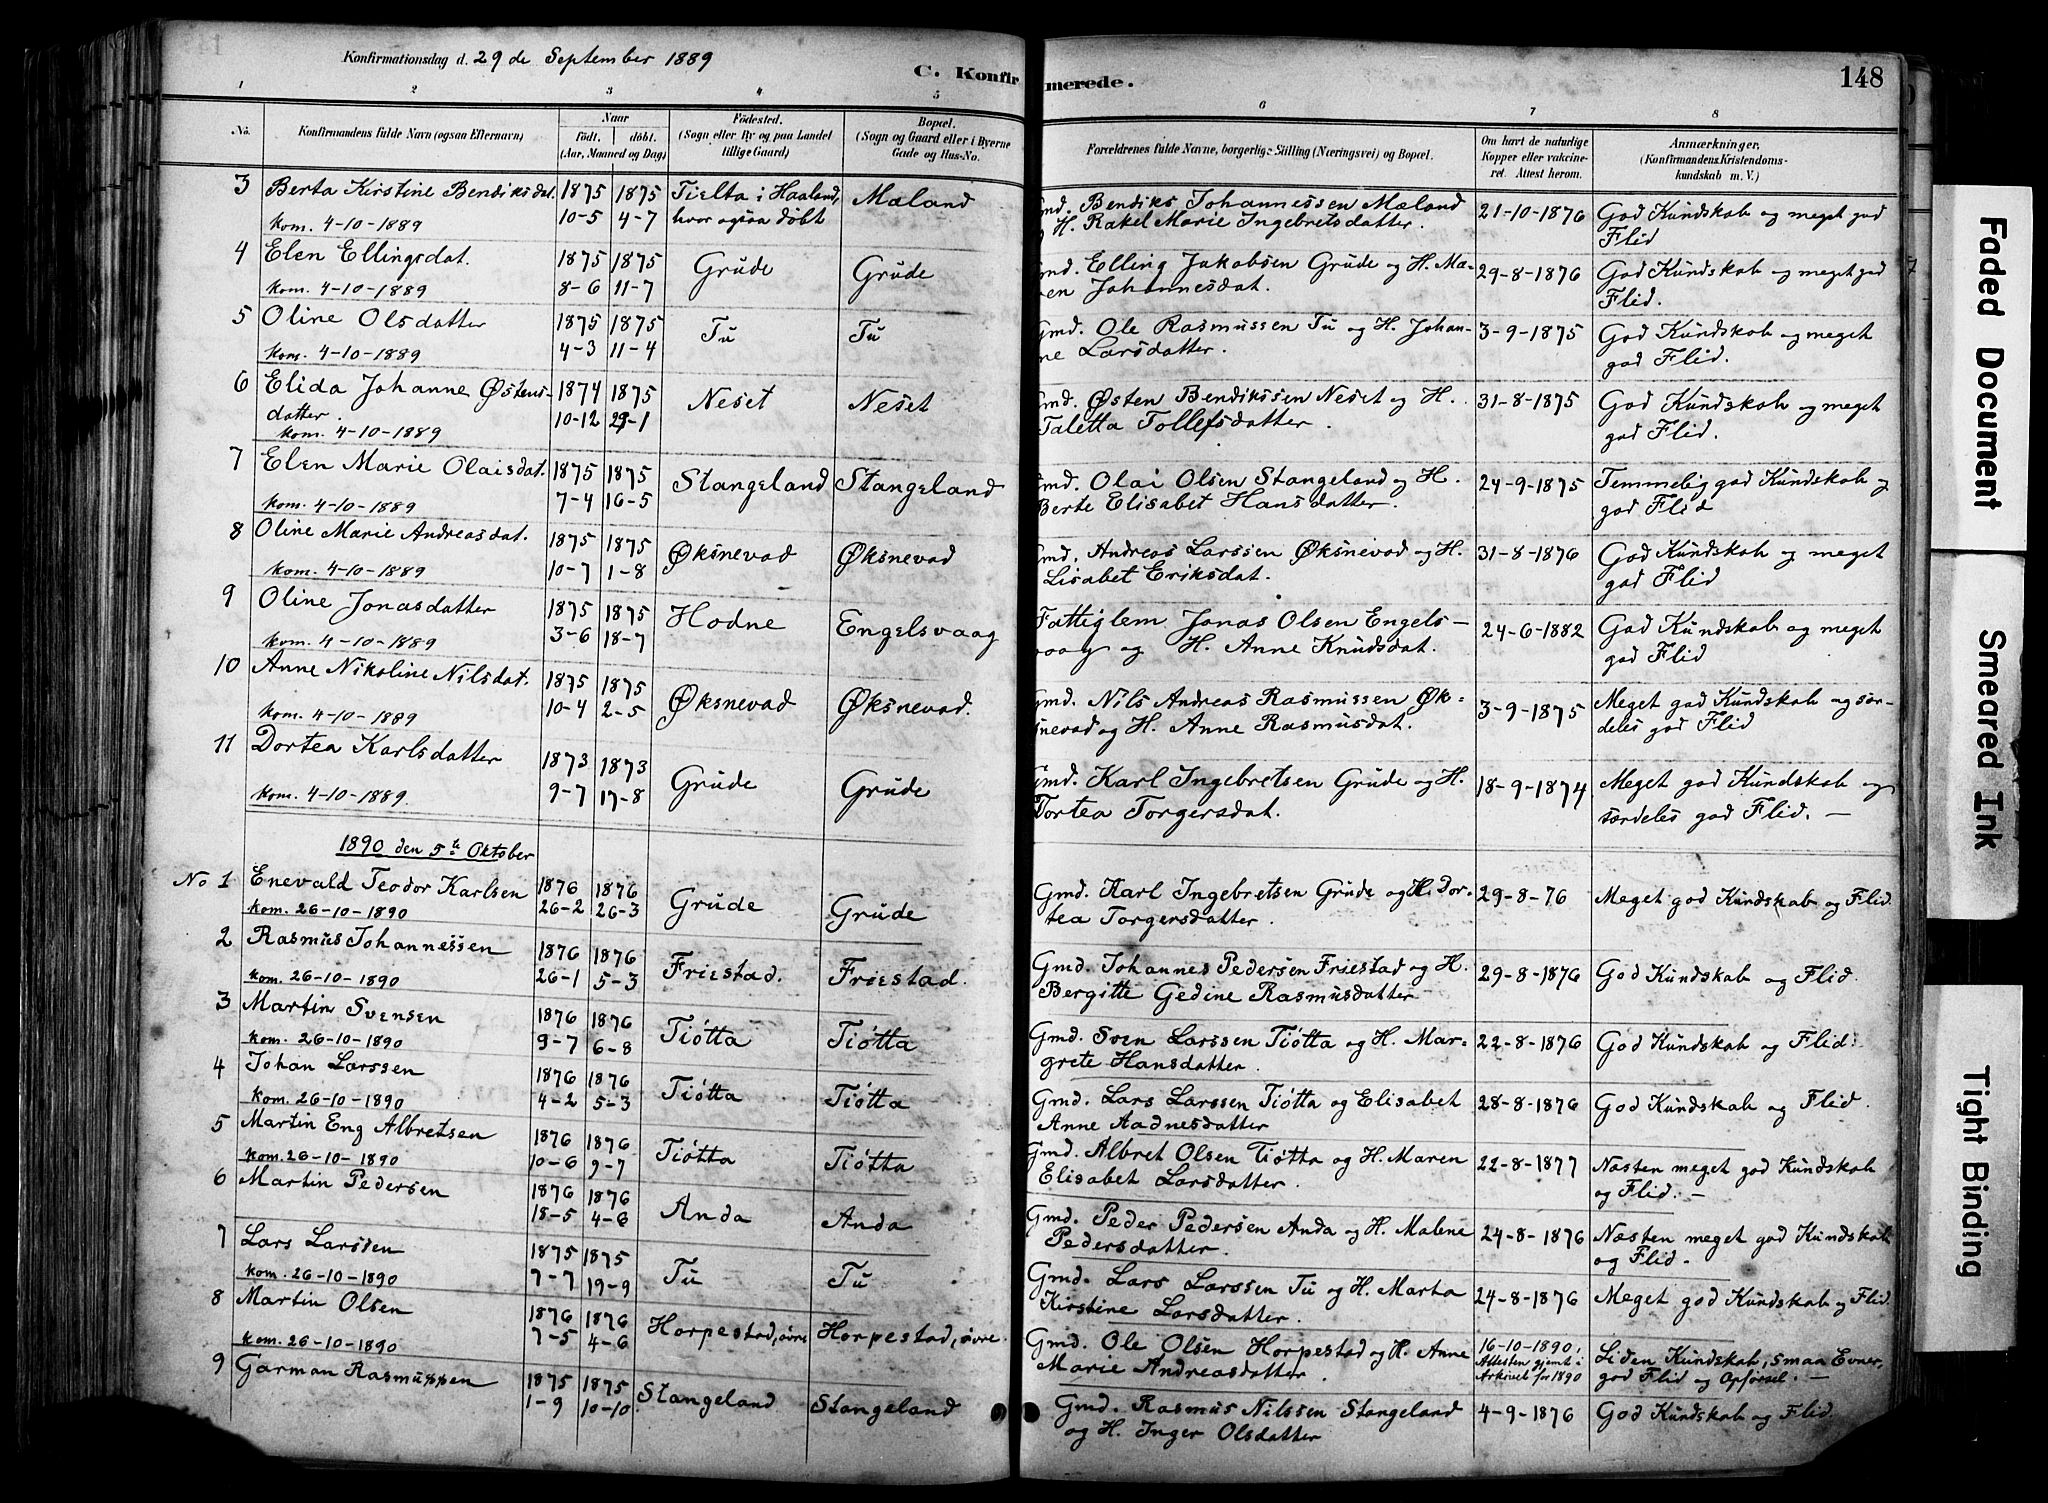 Konfirmationsdag d. 29 de September 1889
C. Konfirmerede.
148
1 2 3 4 5 6 7 8
No. Konfirmandens fulde Navn (ogsaa Efternavn) Naar født. døbt. (Aar, Maaned og Dag) Fødested. (Sogn eller By og paa Landet tillige Gaard) Bopæl. (Sogn og Gaard eller i Byerne Gade og Hus-No. Forældrenes fulde Navne, borgerlige Stilling (Næringsvei) og Bopæl. Om havt de naturlige Kopper eller vakcineret. Attest herom. Anmærkninger. (Konfirmandens Kristendomskundskab m. V.)
3 Berta Kirstine Bendiksdat. 1875 1875 Tielta i Haaland, Mæland Gmd. Bendiks Johannessen Mæland 21-10-1876 God Kundskab og meget god
kom. 4-10-1889 10-5 4-7 hvor ogsaa døbt og H. Rakel Marie Ingebretsdatter. Flid
4 Elen Ellingsdat. 1875 1875 Grude Grude Gmd. Elling Jakobsen Grude og H. Ma- 29-8-1876 God Kundskab og meget god
kom. 4-10-1889 8-6 11-7 ren Johannesdat. Flid.
5 Oline Olsdatter 1875 1875 Tu Tu Gmd. Ole Rasmussen Tu og H. Johan- 3-9-1875 God Kundskab og meget
kom. 4-10-1889 4-3 11-4 ne Larsdatter. god Flid.
6 Elida Johanne Østens- 1874 1875 Neset Neset Gmd. Østen Bendikssen Neset og H. 31-8-1875 God Kundskab og meget
datter. 10-12 29-1 Taletta Tollefsdatter. god Flid.
kom. 4-10-1889
7 Elen Marie Olaisdat. 1875 1875 Stangeland Stangeland Gmd. Olai Olsen Stangeland og H. 24-9-1875 Temmelig god Kundskab og
kom. 4-10-1889 7-4 16-5 Berte Elisabet Hansdatter. god Flid
8 Oline Marie Andreasdat. 1875 1875 Øksnevad Øksnevad Gmd. Andreas Larssen Øksnevad og H. 31-8-1876 God Kundskab og meget
kom. 4-10-1889 10-7 1-8 Lisabet Eriksdat. god Flid
9 Oline Jonasdatter 1875 1875 Hodne Engelsvaag Fattiglem Jonas Olsen Engels- 24-6-1882 God Kundskab og meget
kom. 4-10-1889 3-6 18-7 vaag og H. Anne Knudsdat. god Flid
10 Anne Nikoline Nilsdat. 1875 1875 Øksnevad Øksnevad. Gmd. Nils Andreas Rasmussen Øk- 3-9-1875 Meget god Kundskab og sær-
kom. 4-10-1889 10-4 2-5 snevad og H. Anne Rasmusdat. deles god Flid
11 Dortea Karlsdatter 1873 1873 Grude Grude Gmd. Karl Ingebretsen Grude og H. 18-9-1874 Meget god Kundskab og
kom. 4-10-1889. 9-7 17-8 Dortea Torgersdat. særdeles god Flid. —
1890 den 5te Oktober
No 1 Enevald Teodor Karlsen 1876 1876 Grude Grude Gmd. Karl Ingebretsen Grude og H. Dor- 29-8-76 Meget god Kundskab og Flid
kom. 26-10-1890 26-2 26-3 tea Torgersdatter.
2 Rasmus Johannessen 1876 1876 Friestad. Friestad. Gmd. Johannes Pedersen Friestad og H. 29-8-1876 God Kundskab og Flid.
kom. 26-10-1890 26-1 5-3 Bergitte Gedine Rasmusdatter
3 Martin Svensen 1876 1876 Tiøtta Tiøtta Gmd. Sven Larssen Tiøtta og H. Mar- 22-8-1876 God Kundskab og Flid.
kom. 26-10-1890 9-7 6-8 grete Hansdatter.
4 Johan Larssen 1876 1876 Tiøtta Tiøtta Gmd. Lars Larssen Tiøtta og Elisabet 28-8-1876 God Kundskab og Flid.
kom. 26-10-1890 4-2 5-3 Anne Aadnesdatter
5 Martin Eng Albretsen 1876 1876 Tiøtta Tiøtta Gmd. Albret Olsen Tiøtta og H. Maren 22-8-1877 Næsten meget god Kundskab
kom. 26-10-1890 10-6 9-7 Elisabet Larsdatter. og Flid. —
6 Martin Pedersen 1876 1876 Anda Anda Gmd. Peder Pedersen Anda og H. Malene 24-8-1876 Næsten meget god Kundskab
18-5 4-6 Pedersdatter. og Flid.
7 Lars Larssen 1875 1875 Tu Tu Gmd. Lars Larssen Tu og H. Marta 24-8-1876 Meget god Kundskab og Flid.
kom. 26-10-1890 7-7 19-9 Kirstine Larsdatter.
8 Martin Olsen 1876 1876 Horpestad, øvre Horpestad, øvre Gmd. Ole Olsen Horpestad og H. Anne 16-10-1890, Attesten gjemt i Arkivet for 1890 Liden Kundskab, smaa Evner,
kom. 26-10-1890 7-5 4-6 Marie Andreasdatter. god Flid og Opførsel. —
9 Garman Rasmussen 1875 1875 Stangeland Stangeland Gmd. Rasmus Nilssen Stangeland 4-9-1876 God Kundskab og Flid
1-9 10-10 og H. Inger Olsdatter
Faded Document
Smeared Ink
Tight Binding